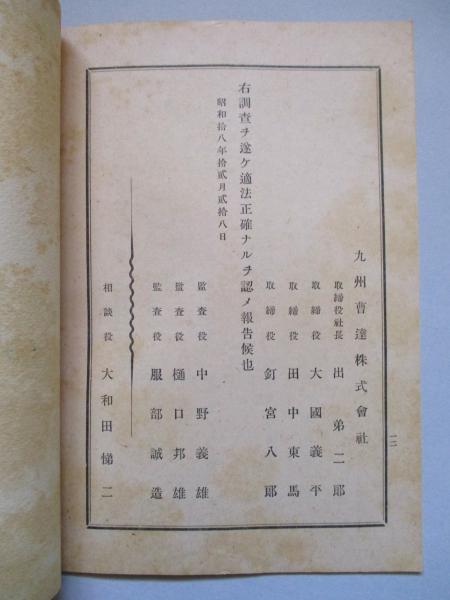 九州曹達株式會社
取締役社長 出弟二郎
取締役 大國義平
取締役 田中東馬
取締役 釘宮八郎
右調査ヲ遂ケ適法正確ナルヲ認メ報告候也
昭和拾八年拾貳月貳拾八日
監査役 中野義雄
監査役 樋口邦雄
監査役 服部誠造
相談役 大和田悌二